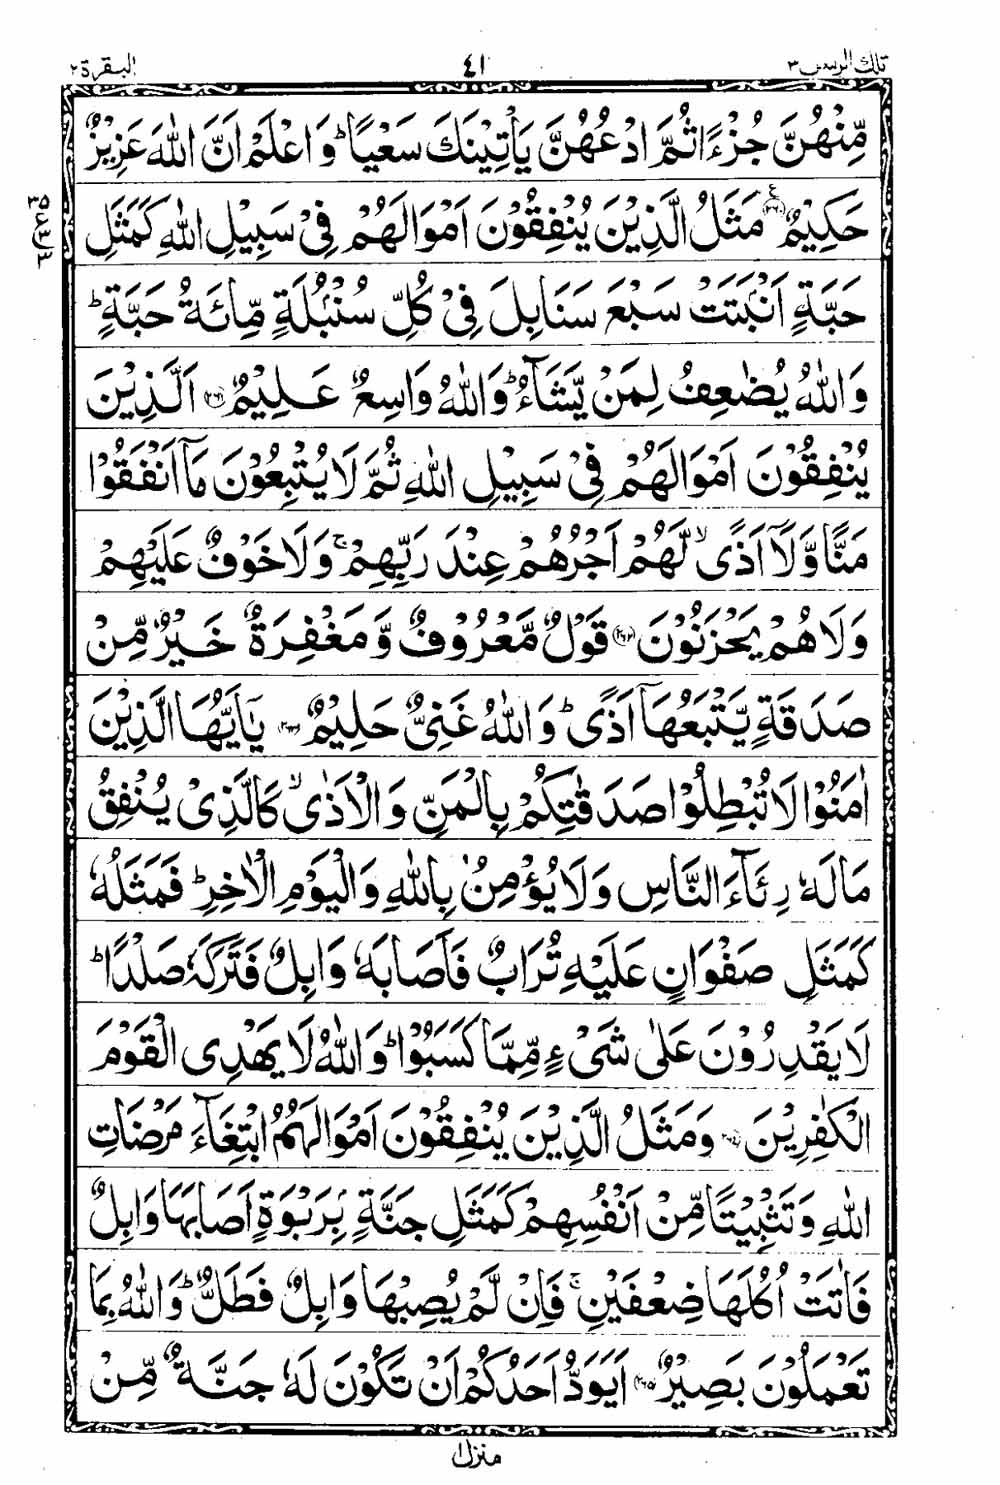 تلك الرسل ٣
٤١
البقرة ٢
مِّنْهُنَّ جُزْءًا ثُمَّ ادْعُهُنَّ يَاْتِيْنَكَ سَعْيًا ؕ وَاعْلَمْ اَنَّ اللّٰهَ عَزِيْزٌ
حَكِيْمٌ ﴿۲۶۰﴾ ع مَثَلُ الَّذِيْنَ يُنْفِقُوْنَ اَمْوَالَهُمْ فِيْ سَبِيْلِ اللّٰهِ كَمَثَلِ
٣٥
ع
٣
حَبَّةٍ اَنْۢبَتَتْ سَبْعَ سَنَابِلَ فِيْ كُلِّ سُنْۢبُلَةٍ مِّائَةُ حَبَّةٍ ؕ
وَاللّٰهُ يُضٰعِفُ لِمَنْ يَّشَآءُ ؕ وَاللّٰهُ وَاسِعٌ عَلِيْمٌ ﴿۲۶۱﴾ اَلَّذِيْنَ
يُنْفِقُوْنَ اَمْوَالَهُمْ فِيْ سَبِيْلِ اللّٰهِ ثُمَّ لَا يُتْبِعُوْنَ مَاۤ اَنْفَقُوْا
مَنًّا وَّلَاۤ اَذًى ۙ لَّهُمْ اَجْرُهُمْ عِنْدَ رَبِّهِمْ ۚ وَلَا خَوْفٌ عَلَيْهِمْ
وَلَا هُمْ يَحْزَنُوْنَ ﴿۲۶۲﴾ قَوْلٌ مَّعْرُوْفٌ وَّمَغْفِرَةٌ خَيْرٌ مِّنْ
صَدَقَةٍ يَّتْبَعُهَاۤ اَذًى ؕ وَاللّٰهُ غَنِيٌّ حَلِيْمٌ ﴿۲۶۳﴾ يٰۤاَيُّهَا الَّذِيْنَ
اٰمَنُوْا لَا تُبْطِلُوْا صَدَقٰتِكُمْ بِالْمَنِّ وَالْاَذٰى ۙ كَالَّذِيْ يُنْفِقُ
مَالَهٗ رِئَآءَ النَّاسِ وَلَا يُؤْمِنُ بِاللّٰهِ وَالْيَوْمِ الْاٰخِرِ ؕ فَمَثَلُهٗ
كَمَثَلِ صَفْوَانٍ عَلَيْهِ تُرَابٌ فَاَصَابَهٗ وَابِلٌ فَتَرَكَهٗ صَلْدًا ؕ
لَا يَقْدِرُوْنَ عَلٰى شَيْءٍ مِّمَّا كَسَبُوْا ؕ وَاللّٰهُ لَا يَهْدِى الْقَوْمَ
الْكٰفِرِيْنَ ﴿۲۶۴﴾ وَمَثَلُ الَّذِيْنَ يُنْفِقُوْنَ اَمْوَالَهُمُ ابْتِغَآءَ مَرْضَاتِ
اللّٰهِ وَتَثْبِيْتًا مِّنْ اَنْفُسِهِمْ كَمَثَلِ جَنَّةٍۭ بِرَبْوَةٍ اَصَابَهَا وَابِلٌ
فَاٰتَتْ اُكُلَهَا ضِعْفَيْنِ ۚ فَاِنْ لَّمْ يُصِبْهَا وَابِلٌ فَطَلٌّ ؕ وَاللّٰهُ بِمَا
تَعْمَلُوْنَ بَصِيْرٌ ﴿۲۶۵﴾ اَيَوَدُّ اَحَدُكُمْ اَنْ تَكُوْنَ لَهٗ جَنَّةٌ مِّنْ
منزل ١